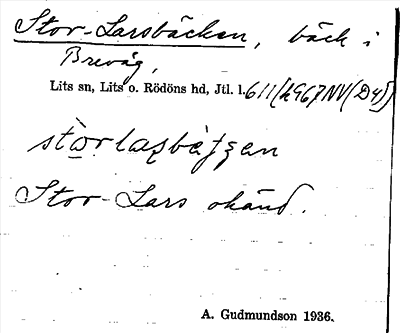 Stor-Larsbäcken, bäck i
Brevåg,
Lits sn, Lits o. Rödöns hd, Jtl. l. 611 (1967 NV (D4))
Stor-Lars okänd.
A. Gudmundson 1936.